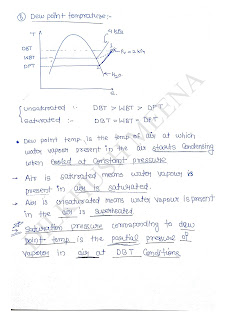 ⑥ Dew point temperature :-
T
4 kPa
Pv = 2 kPa
DBT
WBT
DPT
H2O
S
Unsaturated :- DBT > WBT > DPT
Saturated :- DBT = WBT = DPT
• Dew point temp. is the temp of air at which
water vapour present in the air starts condensing
when cooled at constant pressure
→ Air is saturated means water vapour is
present in air is saturated.
→ Air is unsaturated means water vapour is present
in the air is superheated
Saturation pressure corresponding to dew
point temp is the partial pressure of
vapour in air at DBT conditions
MEENA